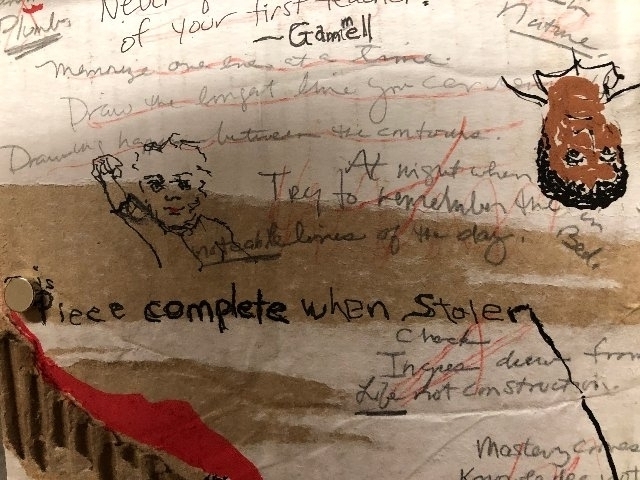 Never
of your first teacher.
~ Gammell
Plumbs
Nature.
Memorize one area at a time.
Draw the longest line you can
Drawing happens between the contours.
At night when
in
Bed.
Try to remember the
noticable lines of the day.
is
Piece complete when Stolen
Check
Ingres drew from
Life not construction.
Mastery comes
Knowledge not